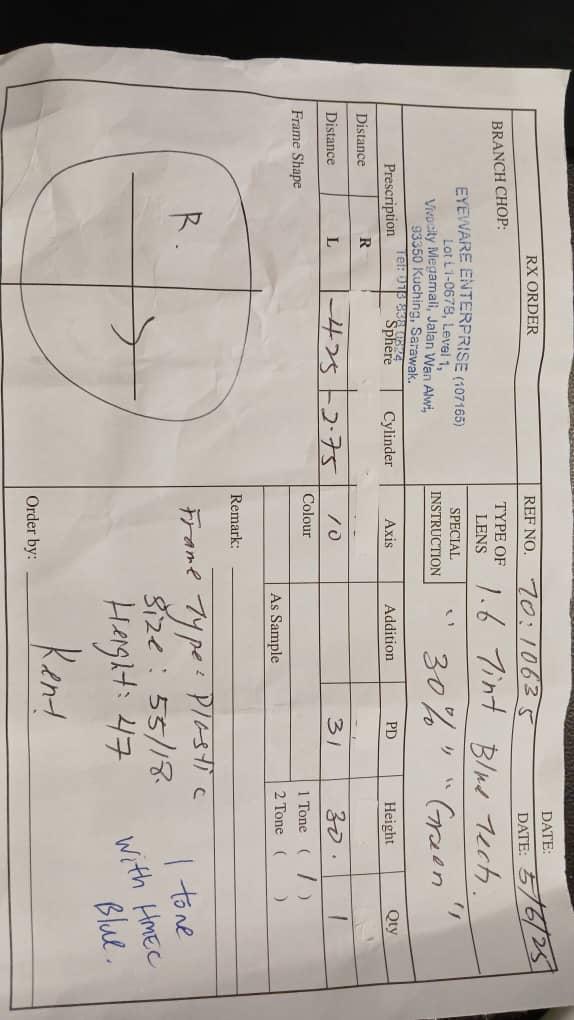 DATE:
RX ORDER
REF NO. 70:10635 DATE: 5/6/25
BRANCH CHOP:
EYEWARE ENTERPRISE (107165)
Lot L1-067B, Level 1,
Vivacity Megamall, Jalan Wan Alwi,
93350 Kuching, Sarawak.
Tel: 013 838 0824
TYPE OF LENS 1.6 Tint Blue Tech.
SPECIAL INSTRUCTION "30%" "Green"
Prescription Sphere Cylinder Axis Addition PD Height Qty
Distance R
Distance L -4.25 -2.75 10 31 30. 1
Frame Shape
R.
Colour
As Sample
1 Tone ( / )
2 Tone ( )
Remark:
Frame Type: Plastic
Size: 55/18.
Height: 47
1 tone
with HMEC
Blue.
Order by: Kent